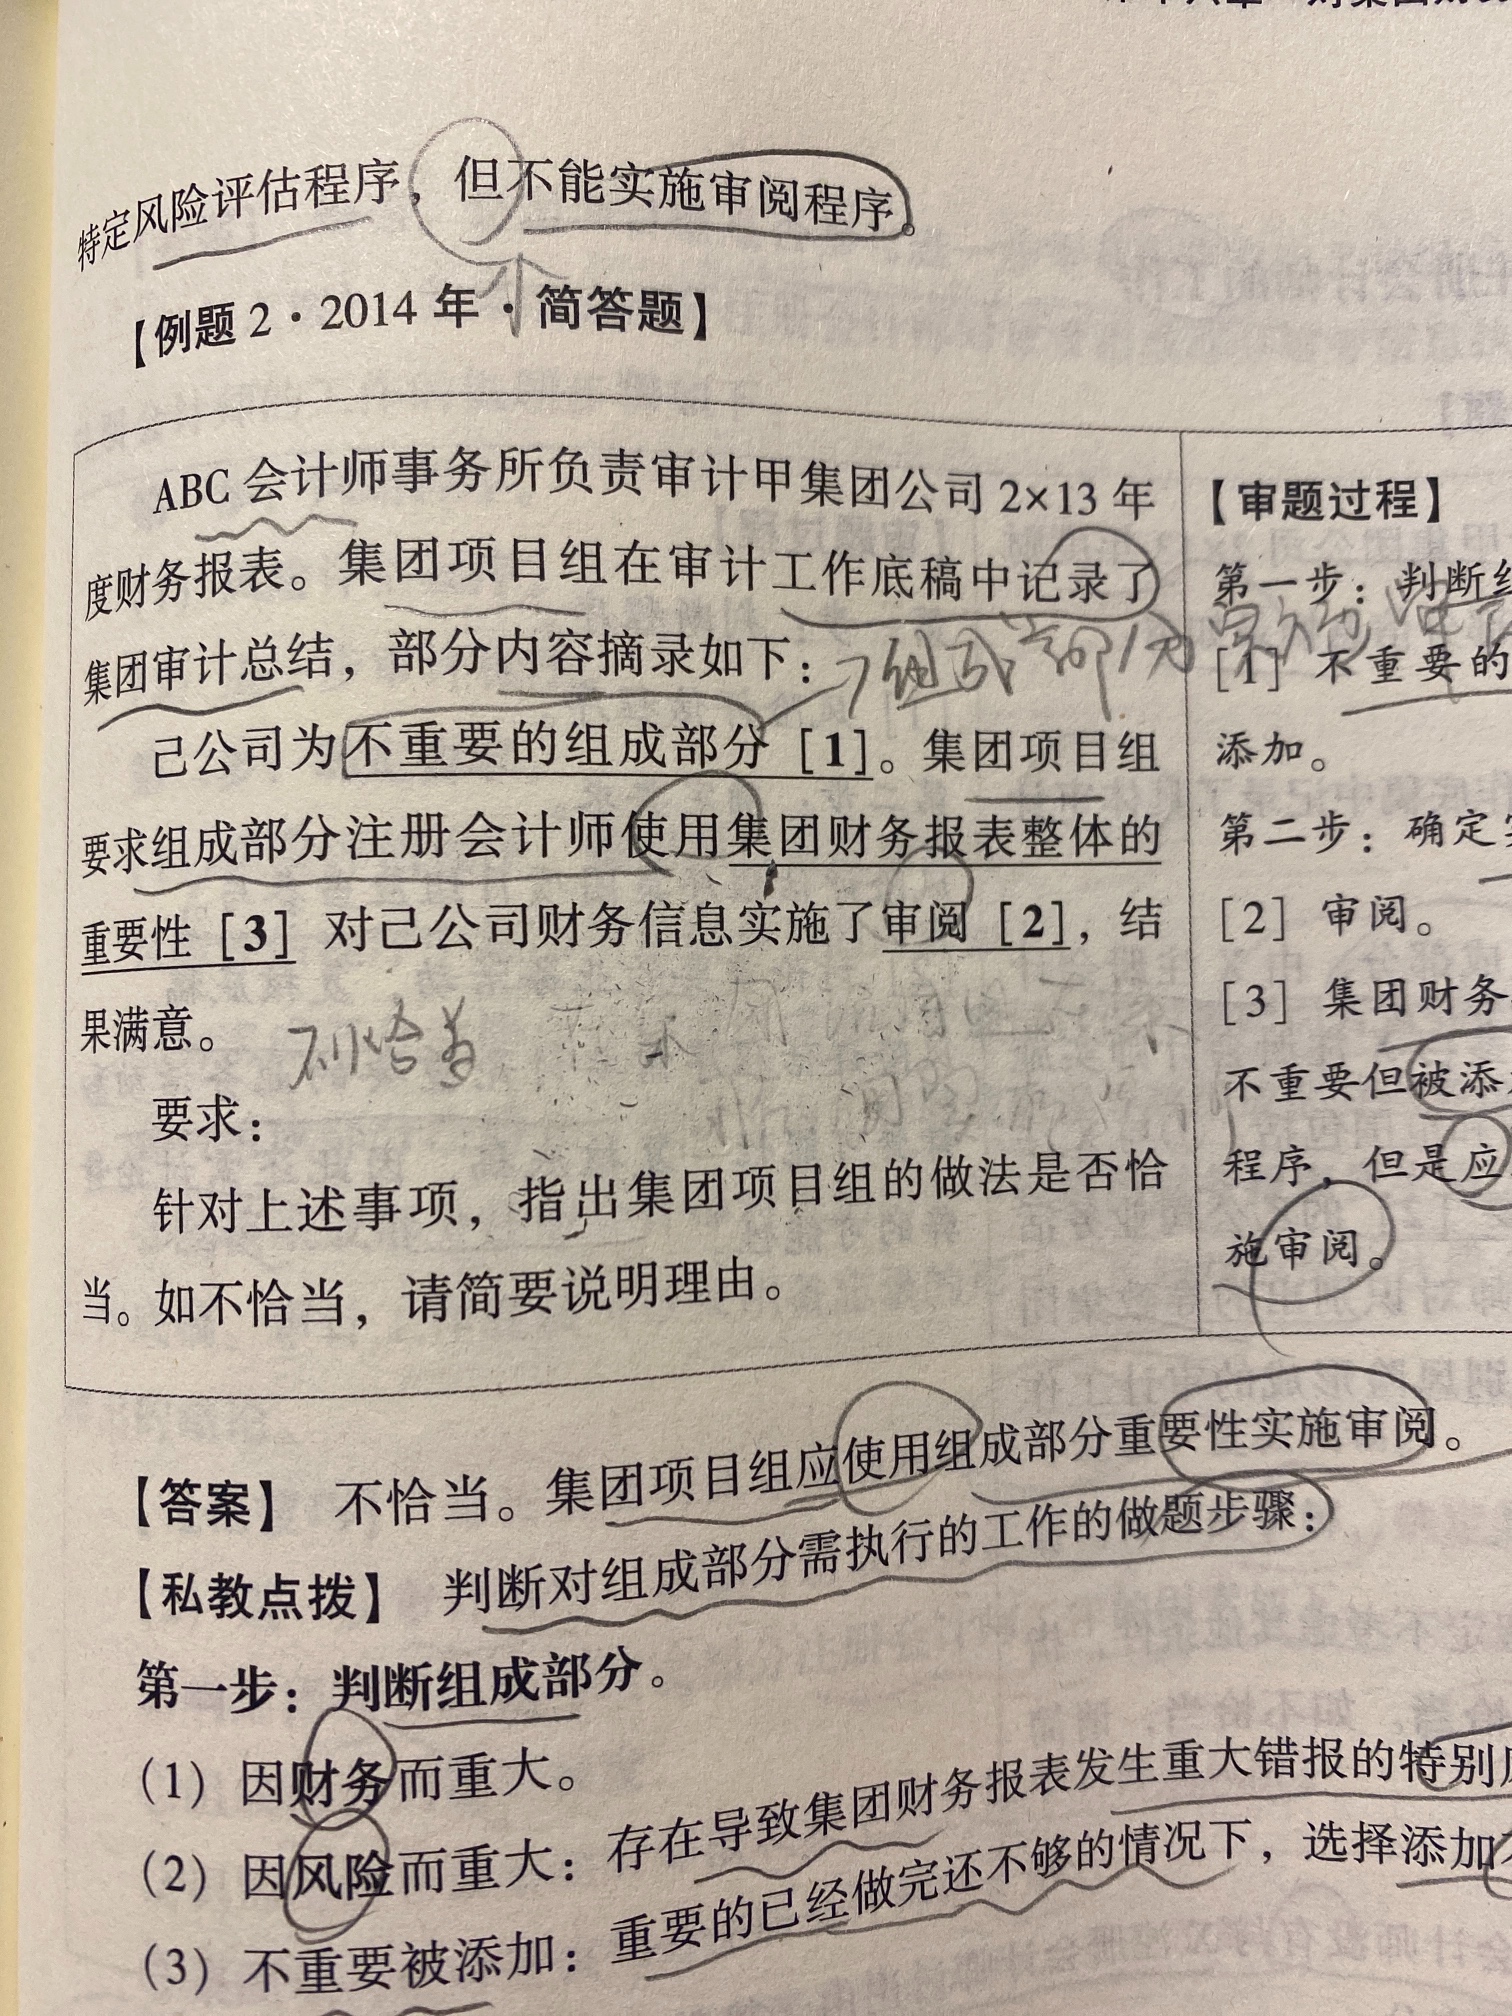 特定风险评估程序，但不能实施审阅程序。
【例题2·2014年·简答题】
ABC会计师事务所负责审计甲集团公司2×13年
度财务报表。集团项目组在审计工作底稿中记录了
集团审计总结，部分内容摘录如下：
组成部分
己公司为不重要的组成部分［1］。集团项目组
要求组成部分注册会计师使用集团财务报表整体的
重要性［3］对己公司财务信息实施了审阅［2］，结
果满意。
不恰当
要求：
针对上述事项，指出集团项目组的做法是否恰
当。如不恰当，请简要说明理由。
【审题过程】
第一步：判断
［1］不重要的
添加。
第二步：确定
［2］审阅。
［3］集团财务
不重要但被添
程序，但是应
施审阅。
【答案】 不恰当。集团项目组应使用组成部分重要性实施审阅。
【私教点拨】 判断对组成部分需执行的工作的做题步骤：
第一步：判断组成部分。
（1）因财务而重大。
（2）因风险而重大：存在导致集团财务报表发生重大错报的特别
（3）不重要被添加：重要的已经做完还不够的情况下，选择添加